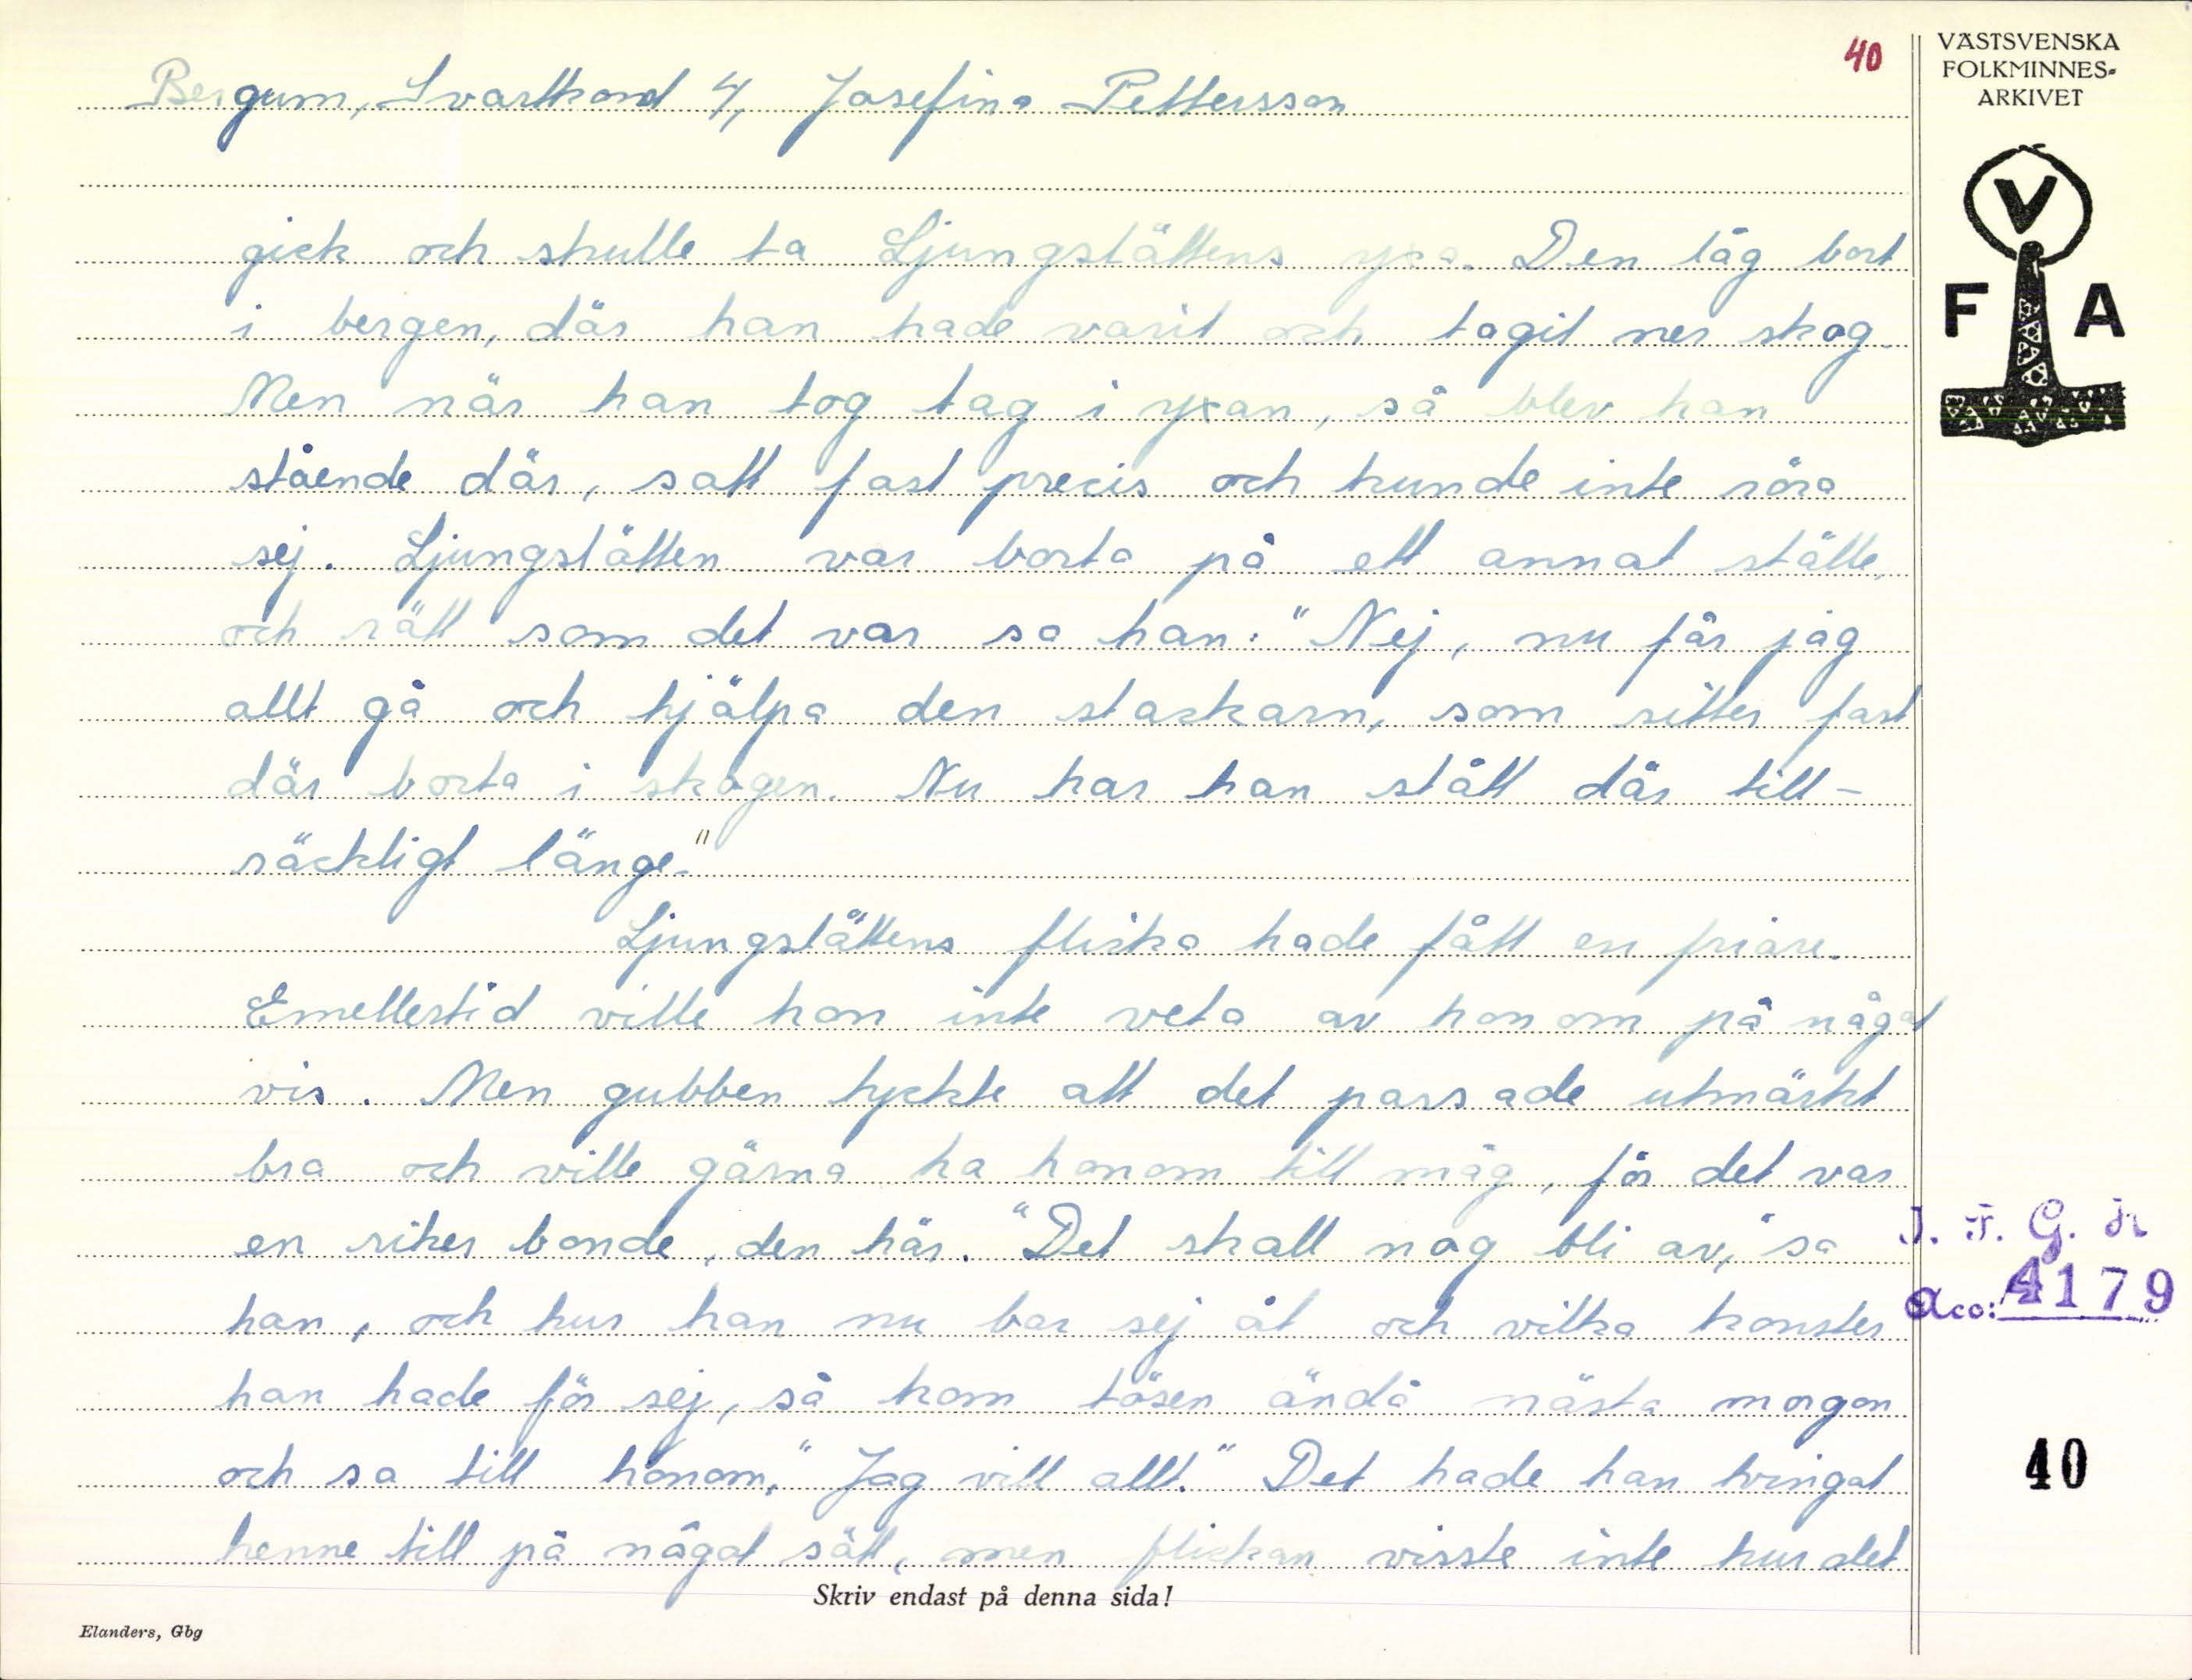 40
VÄSTSVENSKA
FOLKMINNES-
ARKIVET
V
F A
Bergum, Svartkond 4, Josefina Pettersson
gick och skulle ta Ljungslättens yxa. Den låg bort
i bergen, där han hade varit och tagit ner skog.
Men när han tog tag i yxan, så blev han
stående där, satt fast precis och kunde inte röra
sej. Ljungslätten var borta på ett annat ställe,
och rätt som det var sa han: "Nej, nu får jag
allt gå och hjälpa den stackarn, som sitter fast
där borta i skogen. Nu har han stått där till-
räckligt länge."
Ljungslättens flicka hade fått en friare.
Emellertid ville hon inte veta av honom på något
vis. Men gubben tyckte att det passade utmärkt
bra och ville gärna ha honom till måg, för det var
en riker bonde, den här. "Det skall nog bli av," sa
han, och hur han nu bar sej åt och vilka konster
han hade för sej, så kom tösen ändå nästa morgon
och sa till honom, "Jag vill allt." Det hade han tvingat
henne till på något sätt, men flickan visste inte hur det
I. F. G. är
acc: 4179
40
Skriv endast på denna sida!
Elanders, Gbg